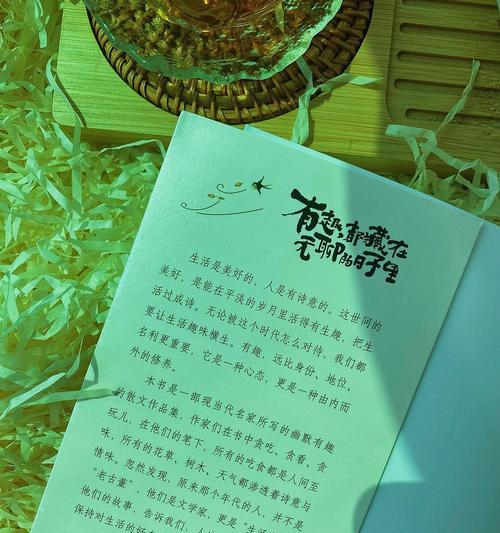 有趣,都藏在
无聊的日子里
生活是美好的，人是有诗意的。这世间的
美好，是能在平淡的岁月里活得有生趣，把生
活过成诗。无论被这个时代怎么对待，我们都
要让生活趣味横生。有趣，远比身份、地位、
名利更重要，它是一种心态，更是一种由内而
外的修养。
本书是一部现当代名家所写的幽默有趣
的散文作品集，作家们在书中贪吃、贪香、贪
玩儿，在他们的笔下，所有的吃食都是人间至
味，所有的花草、树木、天气都渗透着诗意与
情味。忽然发现，原来那个年代的人，并不是
“老古董”，他们是文学家，更是“生活
他们的故事，告诉我们，人
保持对生活的好奇